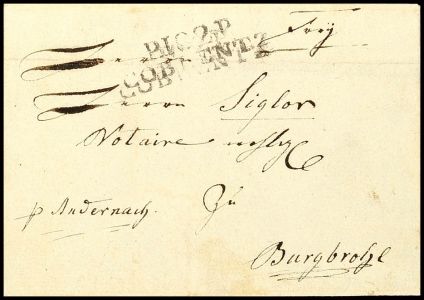 Herrn Frey
P.102.P
COBLENTZ
Herrn Siglor
Notaire
p Andernach. Zu
Burgbrohl